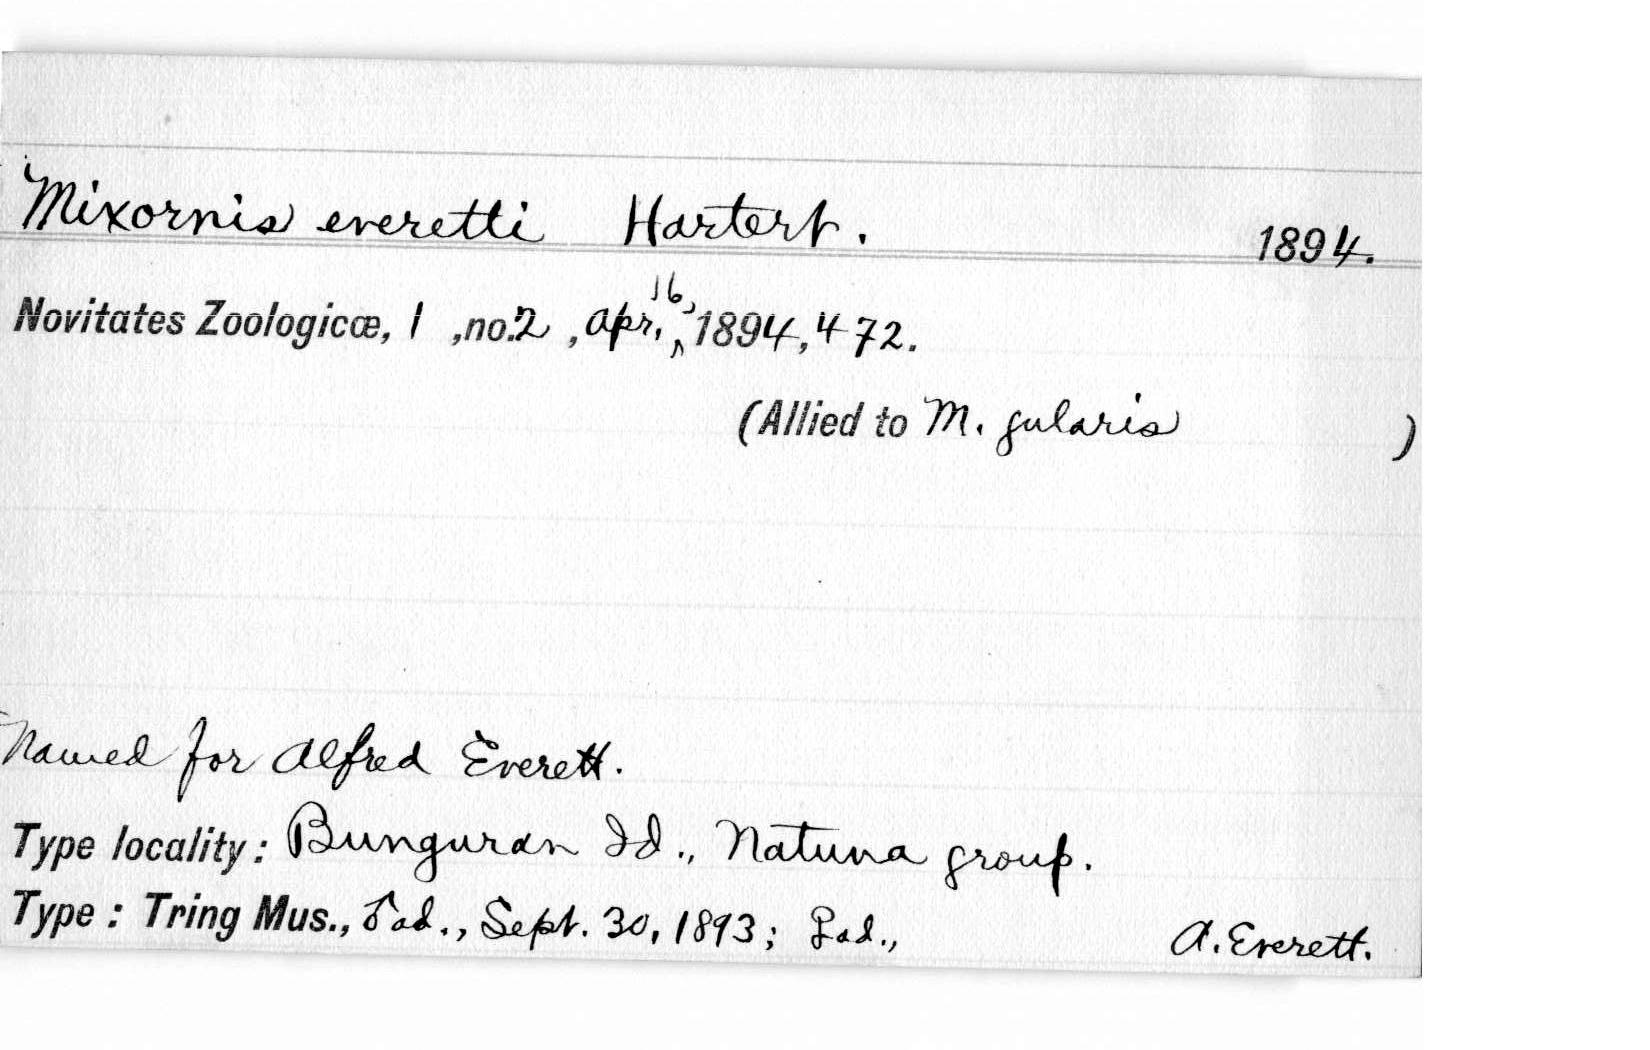 Mixornis everetti Hartert. 1894.
Novitates Zoologicæ, 1, no. 2, Apr. 16, 1894, 472.
(Allied to M. gularis )
Named for Alfred Everett.
Type locality: Bunguran Id., Natuna group.
Type: Tring Mus., ad., Sept. 30, 1893; ad., A. Everett.